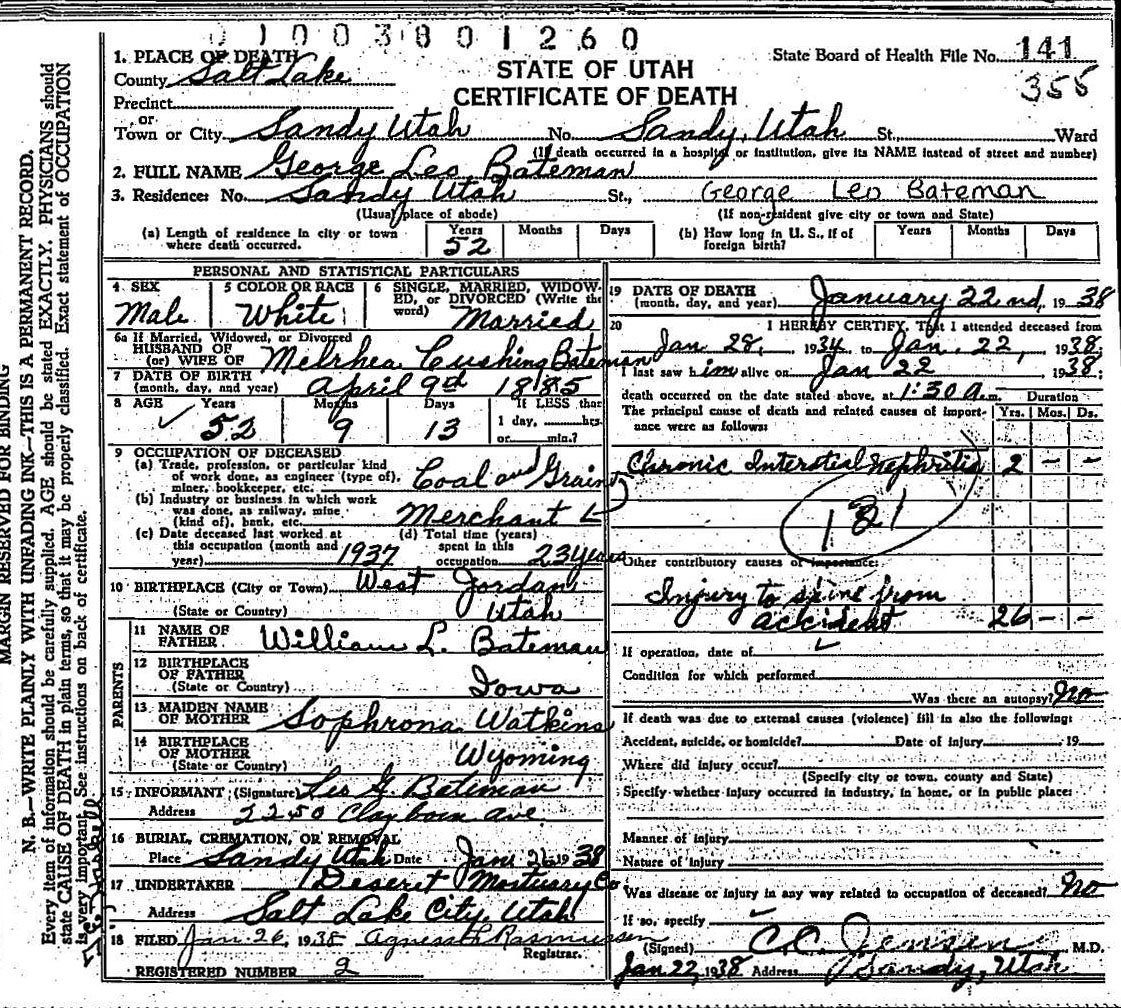 0 1 0 0 3 8 0 1 2 6 0
1. PLACE OF DEATH
County Salt Lake
STATE OF UTAH
CERTIFICATE OF DEATH
State Board of Health File No. 141
355
Precinct
or
Town or City Sandy Utah No. Sandy, Utah St. Ward
(If death occurred in a hospital or institution, give its NAME instead of street and number)
2. FULL NAME George Leo Bateman
3. Residence: No. Sandy Utah St., George Leo Bateman
(Usual place of abode) (If non-resident give city or town and State)
(a) Length of residence in city or town where death occurred. Years 52 Months Days
(b) How long in U. S., if of foreign birth? Years Months Days
PERSONAL AND STATISTICAL PARTICULARS
4 SEX Male
5 COLOR OR RACE White
6 SINGLE, MARRIED, WIDOWED, or DIVORCED (Write the word) Married
6a If Married, Widowed, or Divorced
HUSBAND OF
(or) WIFE OF Melrhea Cushing Bateman
7 DATE OF BIRTH
(month, day, and year) April 9th 1885
8 AGE Years 52 Months 9 Days 13 If LESS than
1 day, hrs.
or min.?
9 OCCUPATION OF DECEASED
(a) Trade, profession, or particular kind
of work done, as engineer (type of),
miner, bookkeeper, etc. Coal and Grain
(b) Industry or business in which work
was done, as railway, mine
(kind of), bank, etc. Merchant
(c) Date deceased last worked at
this occupation (month and
year) 1937
(d) Total time (years)
spent in this
occupation 23 years
10 BIRTHPLACE (City or Town) West Jordan
(State or Country) Utah
PARENTS
11 NAME OF
FATHER William L. Bateman
12 BIRTHPLACE
OF FATHER
(State or Country) Iowa
13 MAIDEN NAME
OF MOTHER Sophrona Watkins
14 BIRTHPLACE
OF MOTHER
(State or Country) Wyoming
15 INFORMANT (Signature) Leo G. Bateman
Address 2250 Clayborn Ave.
16 BURIAL, CREMATION, OR REMOVAL
Place Sandy Utah Date Jan 26 1938
17 UNDERTAKER Deseret Mortuary Co
Address Salt Lake City, Utah
18 FILED Jan. 26, 1938 Rasmussen
Registrar.
REGISTERED NUMBER 2
19 DATE OF DEATH
(month, day, and year) January 22nd, 1938
20 I HEREBY CERTIFY, That I attended deceased from
Jan 28, 1934 to Jan. 22, 1938
I last saw him alive on Jan 22 1938;
death occurred on the date stated above, at 1:30 a.m.
Duration
The principal cause of death and related causes of importance were as follows: Yrs. Mos. Ds.
Chronic Interstial Nephritis 2 - -
Other contributory causes of importance:
Injury to spine from
accident 26 - -
If operation, date of
Condition for which performed
Was there an autopsy? No
If death was due to external causes (violence) fill in also the following:
Accident, suicide, or homicide? Date of injury 19
Where did injury occur?
(Specify city or town, county and State)
Specify whether injury occurred in industry, in home, or in public place:
Manner of injury
Nature of injury
Was disease or injury in any way related to occupation of deceased? No
If so, specify
(Signed) C. C. Jensen M.D.
Jan 22, 1938 Address Sandy, Utah
MARGIN RESERVED FOR BINDING
N. B.—WRITE PLAINLY WITH UNFADING INK—THIS IS A PERMANENT RECORD.
Every item of information should be carefully supplied. AGE should be stated EXACTLY. PHYSICIANS should
state CAUSE OF DEATH in plain terms, so that it may be properly classified. Exact statement of OCCUPATION
is very important. See instructions on back of certificate.